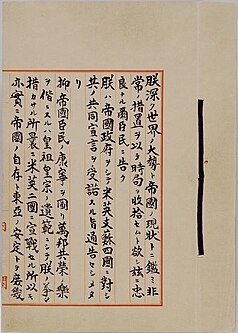 朕深ク世界ノ大勢ト帝國ノ現狀トニ鑑ミ非
常ノ措置ヲ以テ時局ヲ收拾セムト欲シ茲ニ忠
良ナル爾臣民ニ告ク
朕ハ帝國政府ヲシテ米英支蘇四國ニ對シ
其ノ共同宣言ヲ受諾スル旨通告セシメタ
リ
抑〻帝國臣民ノ康寧ヲ圖リ萬邦共榮ノ樂
ヲ偕ニスルハ皇祖皇宗ノ遺範ニシテ朕ノ拳々
措カサル所曩ニ米英二國ニ宣戰セル所以モ
亦實ニ帝國ノ自存ト東亞ノ安定トヲ庶幾